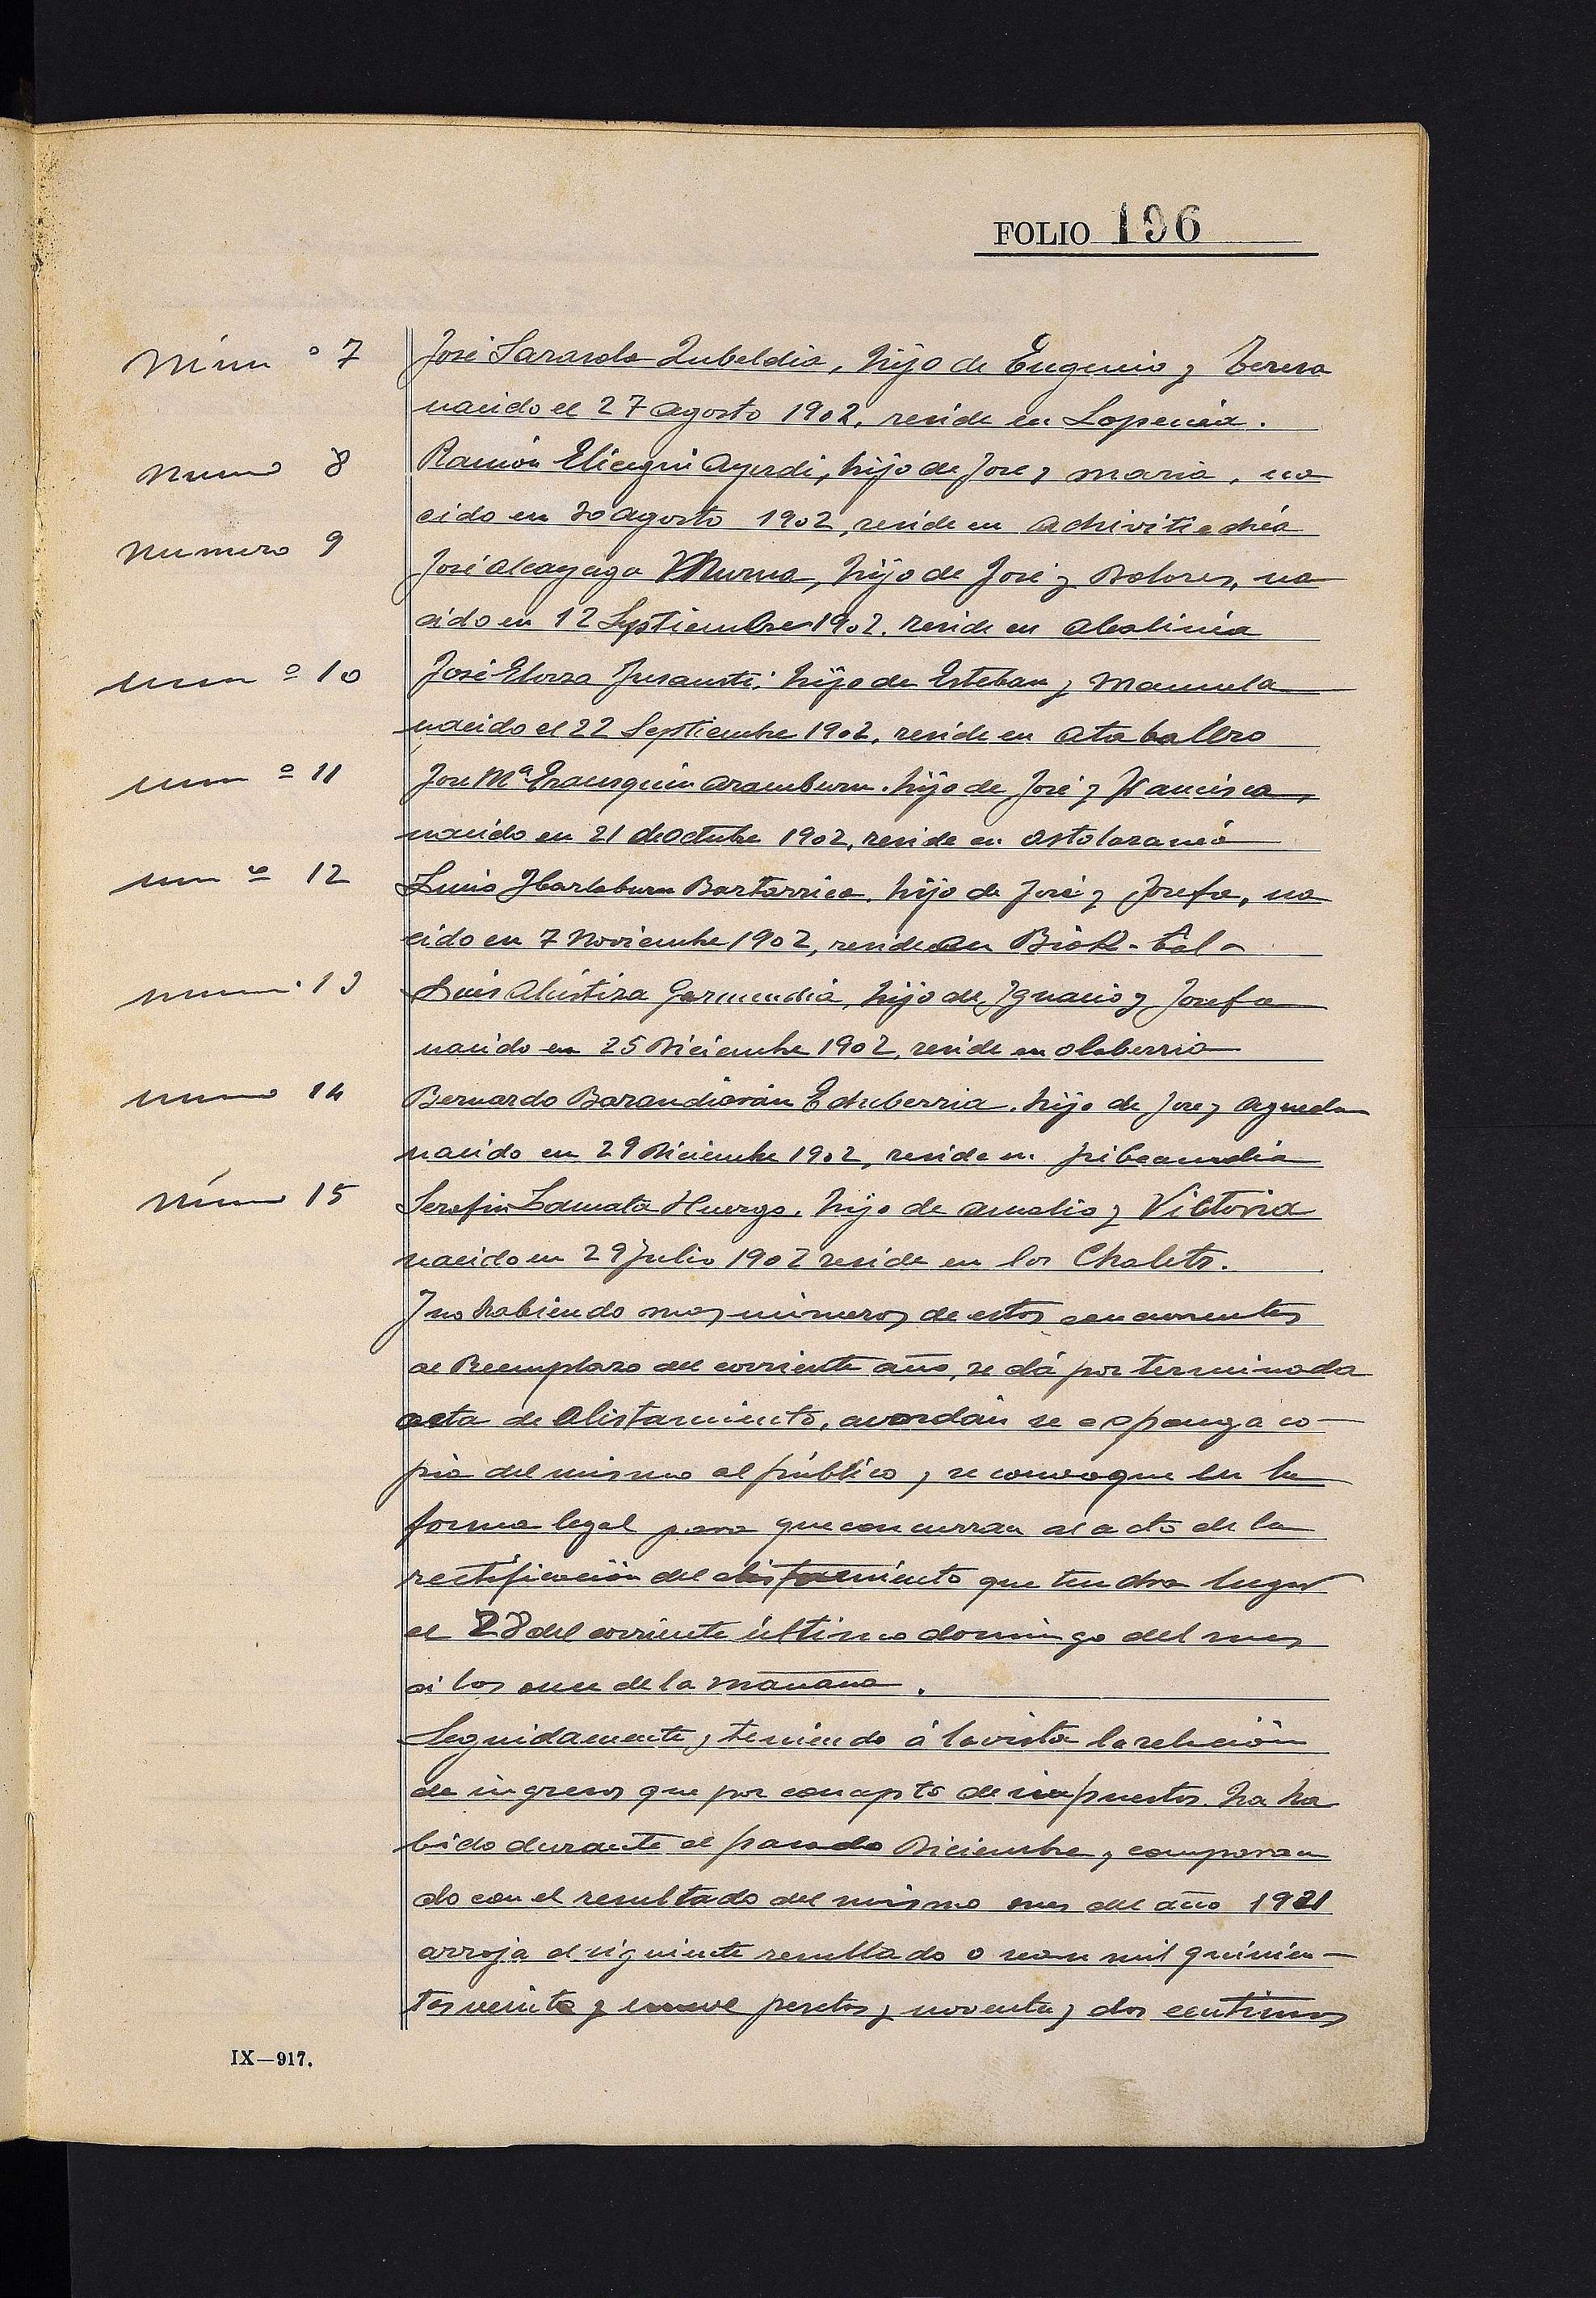 FOLIO 196
Núm º 7
José Sarasola Zubeldia, hijo de Eugenio y Teresa
nacido el 27 agosto 1902, reside en
numo 8
Ramón Elicegui Ayerdi, hijo de Jose y maria, na
cido en 30 agosto 1902, reside en
numero 9
José alcayaga Murua, hijo de José y Dolores, na
cido en 12 Septiembre 1902. reside en
num º 10
José Elorza hijo de Esteban y Manuela
nacido el 22 Septiembre 1902, reside en
num º 11
Jose Mª Erausquin aramburu. hijo de José y Francisca,
nacido en 21 de octubre 1902, reside en
num º 12
hijo de José y Josefa, na
cido en 7 Noviembre 1902, reside en
num. 13
Luis Alustiza Garmendia, hijo de Ignacio y Josefa
nacido en 25 Diciembre 1902, reside en olaberria
numo 14
Bernardo Barandiarán Echeberria. hijo de Jose y Agueda
nacido en 29 Diciembre 1902, reside en
núm 15
Serafin Zamata Huergo. hijo de Amalio y Victoria
nacido en 29 Julio 1902 reside en los Chalets.
Y no habiendo mas números de estos concurrentes
al Reemplazo del corriente año, se dá por terminada
acta de Alistamiento, acordán se exponga co-
pia del mismo al público y se convoque en la
forma legal para que concurran al acto de la
rectificación del alistamiento que tendra lugar
el 28 del corriente último domingo del mes
á las once de la mañana.
Seguidamente y teniendo á la vista la relación
de ingresos que por concepto de impuestos ha ha
bido durante el pasado Diciembre y comparan
do con el resultado del mismo mes del año 1921
arroja el siguiente resultado o sean mil quinien-
tos veinte y nueve pesetas y noventa y dos centimos
IX—917.